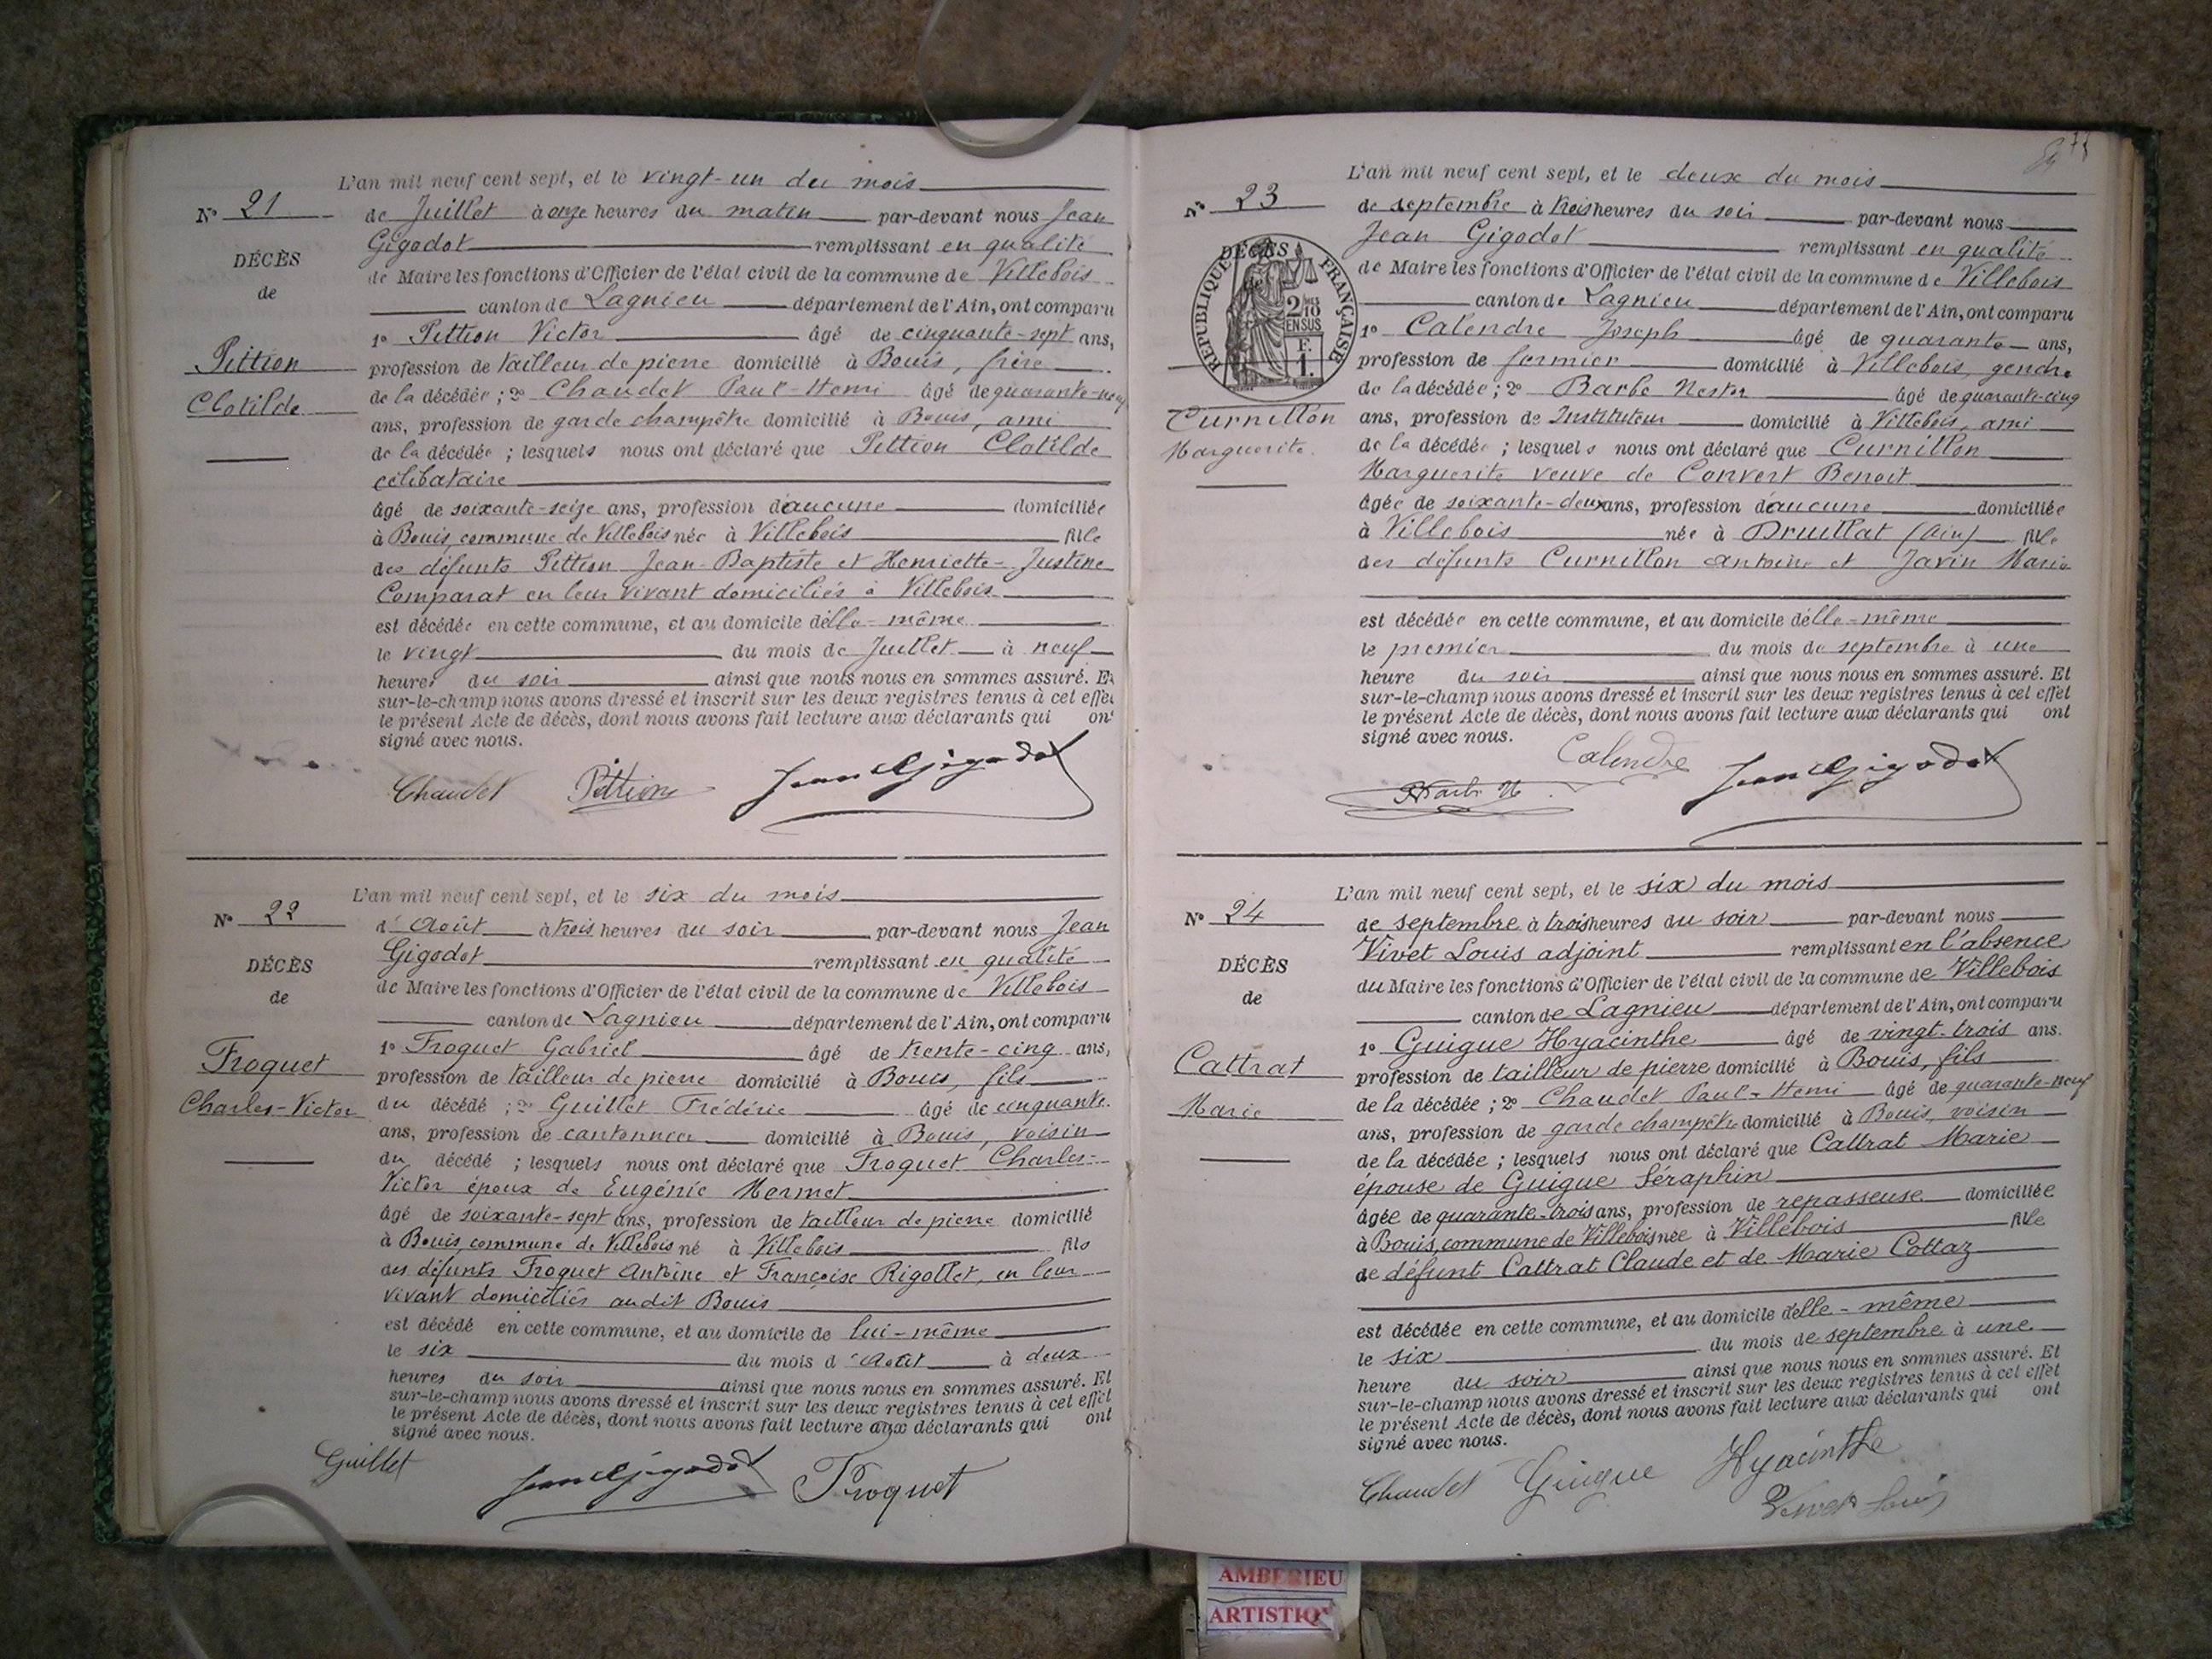 L'an mil neuf cent sept, et le vingt-un du mois
N° 21
de Juillet à onze heures du matin par-devant nous Jean
Gigodot remplissant en qualité
DÉCÈS
de Maire les fonctions d'Officier de l'état civil de la commune de Villebois
de
canton de Lagnieu département de l'Ain, ont comparu
1° Pittion Victor âgé de cinquante-sept ans,
Pittion
profession de tailleur de pierre domicilié à Bouis, frère
Clotilde
de la décédée ; 2° Chaudet Paul-Henri âgé de quarante-neuf
ans, profession de garde champêtre domicilié à Bouis, ami
de la décédée ; lesquels nous ont déclaré que Pittion Clotilde
célibataire
âgé de soixante-seize ans, profession d'aucune domiciliée
à Bouis, commune de Villebois née à Villebois fille
des défunts Pittion Jean-Baptiste et Henriette-Justine
Comparat en leur vivant domiciliés à Villebois
est décédée en cette commune, et au domicile d'elle-même
le vingt du mois de Juillet à neuf
heures du soir ainsi que nous nous en sommes assuré. Et
sur-le-champ nous avons dressé et inscrit sur les deux registres tenus à cet effet
le présent Acte de décès, dont nous avons fait lecture aux déclarants qui ont
signé avec nous.
Chaudet Pittion Jean Gigodot
L'an mil neuf cent sept, et le six du mois
N° 22
d'Août à trois heures du soir par-devant nous Jean
Gigodot remplissant en qualité
DÉCÈS
de Maire les fonctions d'Officier de l'état civil de la commune de Villebois
de
canton de Lagnieu département de l'Ain, ont comparu
1° Froquet Gabriel âgé de trente-cinq ans,
Froquet
profession de tailleur de pierre domicilié à Bouis, fils
Charles-Victor
du décédé ; 2° Guillet Frédéric âgé de cinquante
ans, profession de cantonnier domicilié à Bouis, voisin
du décédé ; lesquels nous ont déclaré que Froquet Charles-
Victor époux de Eugénie Mermet
âgé de soixante-sept ans, profession de tailleur de pierre domicilié
à Bouis, commune de Villebois né à Villebois fils
des défunts Froquet Antoine et Françoise Rigollet, en leur
vivant domiciliés audit Bouis
est décédé en cette commune, et au domicile de lui-même
le six du mois d'Août à deux
heures du soir ainsi que nous nous en sommes assuré. Et
sur-le-champ nous avons dressé et inscrit sur les deux registres tenus à cet effet
le présent Acte de décès, dont nous avons fait lecture aux déclarants qui ont
signé avec nous.
Guillet Jean Gigodot Froquet
L'an mil neuf cent sept, et le deux du mois
N° 23
de septembre à trois heures du soir par-devant nous
Jean Gigodot remplissant en qualité
DÉCÈS
RÉPUBLIQUE FRANÇAISE
2/10 MES
EN SUS
F.
1.
de Maire les fonctions d'Officier de l'état civil de la commune de Villebois
canton de Lagnieu département de l'Ain, ont comparu
1° Calendre Joseph âgé de quarante ans,
profession de fermier domicilié à Villebois, gendre
de la décédée ; 2° Barbe Nestor âgé de quarante-cinq
Curnillon
ans, profession de Instituteur domicilié à Villebois, ami
Marguerite
de la décédée ; lesquels nous ont déclaré que Curnillon
Marguerite veuve de Convert Benoit
âgée de soixante-deux ans, profession d'aucune domiciliée
à Villebois née à Druillat (Ain) fille
des défunts Curnillon Antoine et Javin Marie
est décédée en cette commune, et au domicile d'elle-même
le premier du mois de septembre à une
heure du soir ainsi que nous nous en sommes assuré. Et
sur-le-champ nous avons dressé et inscrit sur les deux registres tenus à cet effet
le présent Acte de décès, dont nous avons fait lecture aux déclarants qui ont
signé avec nous.
Calendre
Barbe N Jean Gigodot
L'an mil neuf cent sept, et le six du mois
N° 24
de septembre à trois heures du soir par-devant nous
Vivet Louis adjoint remplissant en l'absence
DÉCÈS
du Maire les fonctions d'Officier de l'état civil de la commune de Villebois
de
canton de Lagnieu département de l'Ain, ont comparu
1° Guigue Hyacinthe âgé de vingt-trois ans.
Cattrat
profession de tailleur de pierre domicilié à Bouis, fils
Marie
de la décédée ; 2° Chaudet Paul-Henri âgé de quarante-neuf
ans, profession de garde champêtre domicilié à Bouis, voisin
de la décédée ; lesquels nous ont déclaré que Cattrat Marie
épouse de Guigue Séraphin
âgée de quarante-trois ans, profession de repasseuse domiciliée
à Bouis, commune de Villebois née à Villebois fille
de défunt Cattrat Claude et de Marie Cottaz
est décédée en cette commune, et au domicile d'elle-même
le six du mois de septembre à une
heure du soir ainsi que nous nous en sommes assuré. Et
sur-le-champ nous avons dressé et inscrit sur les deux registres tenus à cet effet
le présent Acte de décès, dont nous avons fait lecture aux déclarants qui ont
signé avec nous.
Chaudet Guigue Hyacinthe
Vivet Louis
AMBERIEU
ARTISTIQ